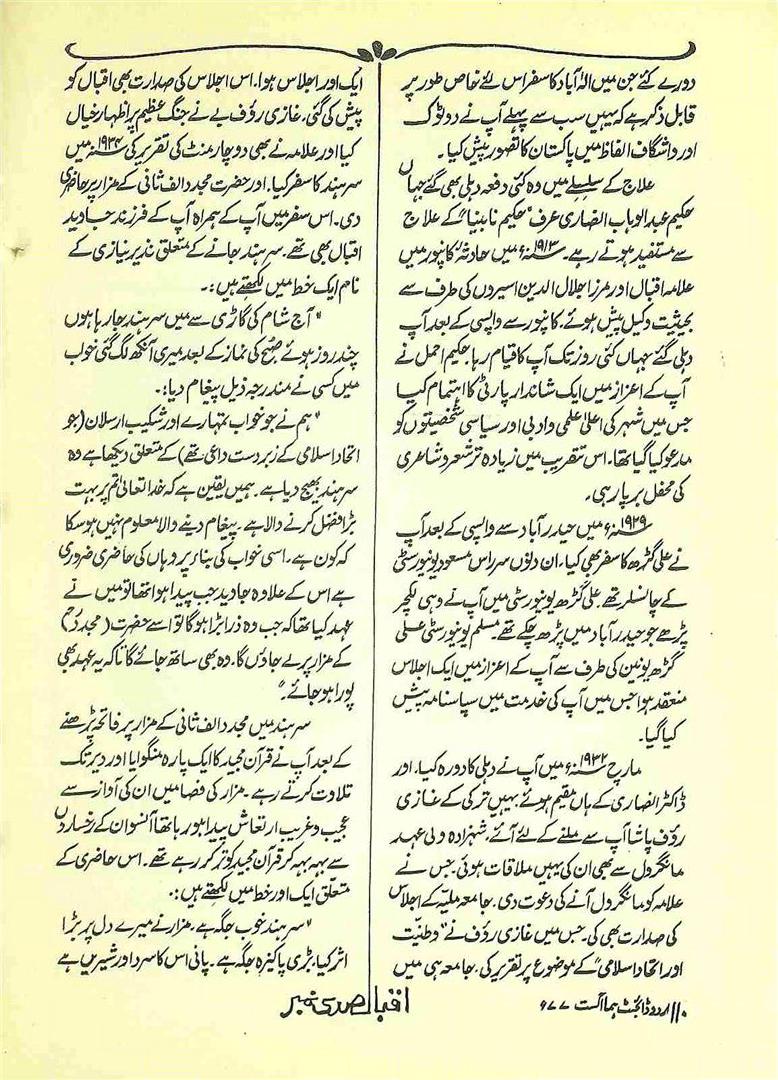 دورے کئے جن میں الٰہ آباد کا سفر اس لئے خاص طور پر
قابل ذکر ہے کہ یہیں سب سے پہلے آپ نے دو ٹوک
اور واشگاف الفاظ میں پاکستان کا تصور پیش کیا۔
علاج کے سلسلے میں وہ کئی دفعہ دہلی بھی گئے جہاں
حکیم عبدالوہاب انصاری عرف "حکیم نابینا" کے علاج
سے مستفید ہوتے رہے۔ ۱۹۱۳ء میں حادثہ کانپور میں
علامہ اقبال اور مرزا جلال الدین اسیروں کی طرف سے
بحیثیت وکیل پیش ہوئے۔ کانپور سے واپسی کے بعد آپ
دہلی گئے یہاں کئی روز تک آپ کا قیام رہا حکیم اجمل نے
آپ کے اعزاز میں ایک شاندار پارٹی کا اہتمام کیا
جس میں شہر کی اعلیٰ علمی و ادبی اور سیاسی شخصیتوں کو
مدعو کیا گیا تھا۔ اس تقریب میں زیادہ تر شعر و شاعری
کی محفل برپا رہی۔
۱۹۲۹ء میں حیدر آباد سے واپسی کے بعد آپ
نے علی گڑھ کا سفر بھی کیا۔ ان دنوں سر راس مسعود یونیورسٹی
کے چانسلر تھے۔ علی گڑھ یونیورسٹی میں آپ نے وہی لیکچر
پڑھے جو حیدر آباد میں پڑھ چکے تھے۔ مسلم یونیورسٹی علی
گڑھ یونین کی طرف سے آپ کے اعزاز میں ایک اجلاس
منعقد ہوا جس میں آپ کی خدمت میں سپاسنامہ پیش
کیا گیا۔
مارچ ۱۹۳۲ء میں آپ نے دہلی کا دورہ کیا۔ اور
ڈاکٹر انصاری کے ہاں مقیم ہوئے۔ یہیں ترکی کے غازی
رؤف پاشا آپ سے ملنے کے لئے آئے۔ شہزادہ ولی عہد
مانگرول سے بھی ان کی یہیں ملاقات ہوئی۔ جس نے
علامہ کو مانگرول آنے کی دعوت دی۔ جامعہ ملیہ کے اجلاس
کی صدارت بھی کی۔ جس میں غازی رؤف نے "وطنیت
اور اتحاد اسلامی" کے موضوع پر تقریر کی۔ جامعہ ہی میں
ایک اور اجلاس ہوا۔ اس اجلاس کی صدارت بھی اقبال کو
پیش کی گئی۔ غازی رؤف بے نے جنگ عظیم پر اظہار خیال
کیا اور علامہ نے بھی دو چار منٹ کی تقریر کی ۱۹۳۴ء میں
سرہند کا سفر کیا۔ اور حضرت مجدد الف ثانی کے مزار پر حاضری
دی۔ اس سفر میں آپ کے ہمراہ آپ کے فرزند جاوید
اقبال بھی تھے۔ سرہند جانے کے متعلق نذیر نیازی کے
نام ایک خط میں لکھتے ہیں:۔
"آج شام کی گاڑی سے میں سرہند جا رہا ہوں
چند روز ہوئے صبح کی نماز کے بعد میری آنکھ لگ گئی خواب
میں کسی نے مندرجہ ذیل پیغام دیا:۔
"ہم نے جو خواب تمہارے اور شکیب ارسلان (جو
اتحاد اسلامی کے زبردست داعی تھے) کے متعلق دیکھا ہے وہ
سرہند بھیج دیا ہے۔ ہمیں یقین ہے کہ خدا تعالیٰ تم پر بہت
بڑا فضل کرنے والا ہے۔ پیغام دینے والا معلوم نہیں ہو سکا
کہ کون ہے۔ اسی خواب کی بناء پر وہاں کی حاضری ضروری
ہے اس کے علاوہ جاوید جب پیدا ہوا تھا تو میں نے
عہد کیا تھا کہ جب وہ ذرا بڑا ہوگا تو اسے حضرت (مجددؒ)
کے مزار پر لے جاؤں گا۔ وہ بھی ساتھ جائے گا تاکہ یہ عہد بھی
پورا ہو جائے۔"
سرہند میں مجدد الف ثانی کے مزار پر فاتحہ پڑھنے
کے بعد آپ نے قرآن مجید کا ایک پارہ منگوایا اور دیر تک
تلاوت کرتے رہے۔ مزار کی فضا میں ان کی آواز سے
عجیب و غریب ارتعاش پیدا ہو رہا تھا آنسو ان کے رخساروں
سے بہہ بہہ کر قرآن مجید کو تر کر رہے تھے۔ اس حاضری کے
متعلق ایک اور خط میں لکھتے ہیں:۔
"سرہند خوب جگہ ہے۔ مزار نے میرے دل پر بڑا
اثر کیا، بڑی پاکیزہ جگہ ہے۔ پانی اس کا سرد اور شیریں ہے
۱۱۰ اردو ڈائجسٹ ہما اگست ۷۷ء
اقبال صدی نمبر